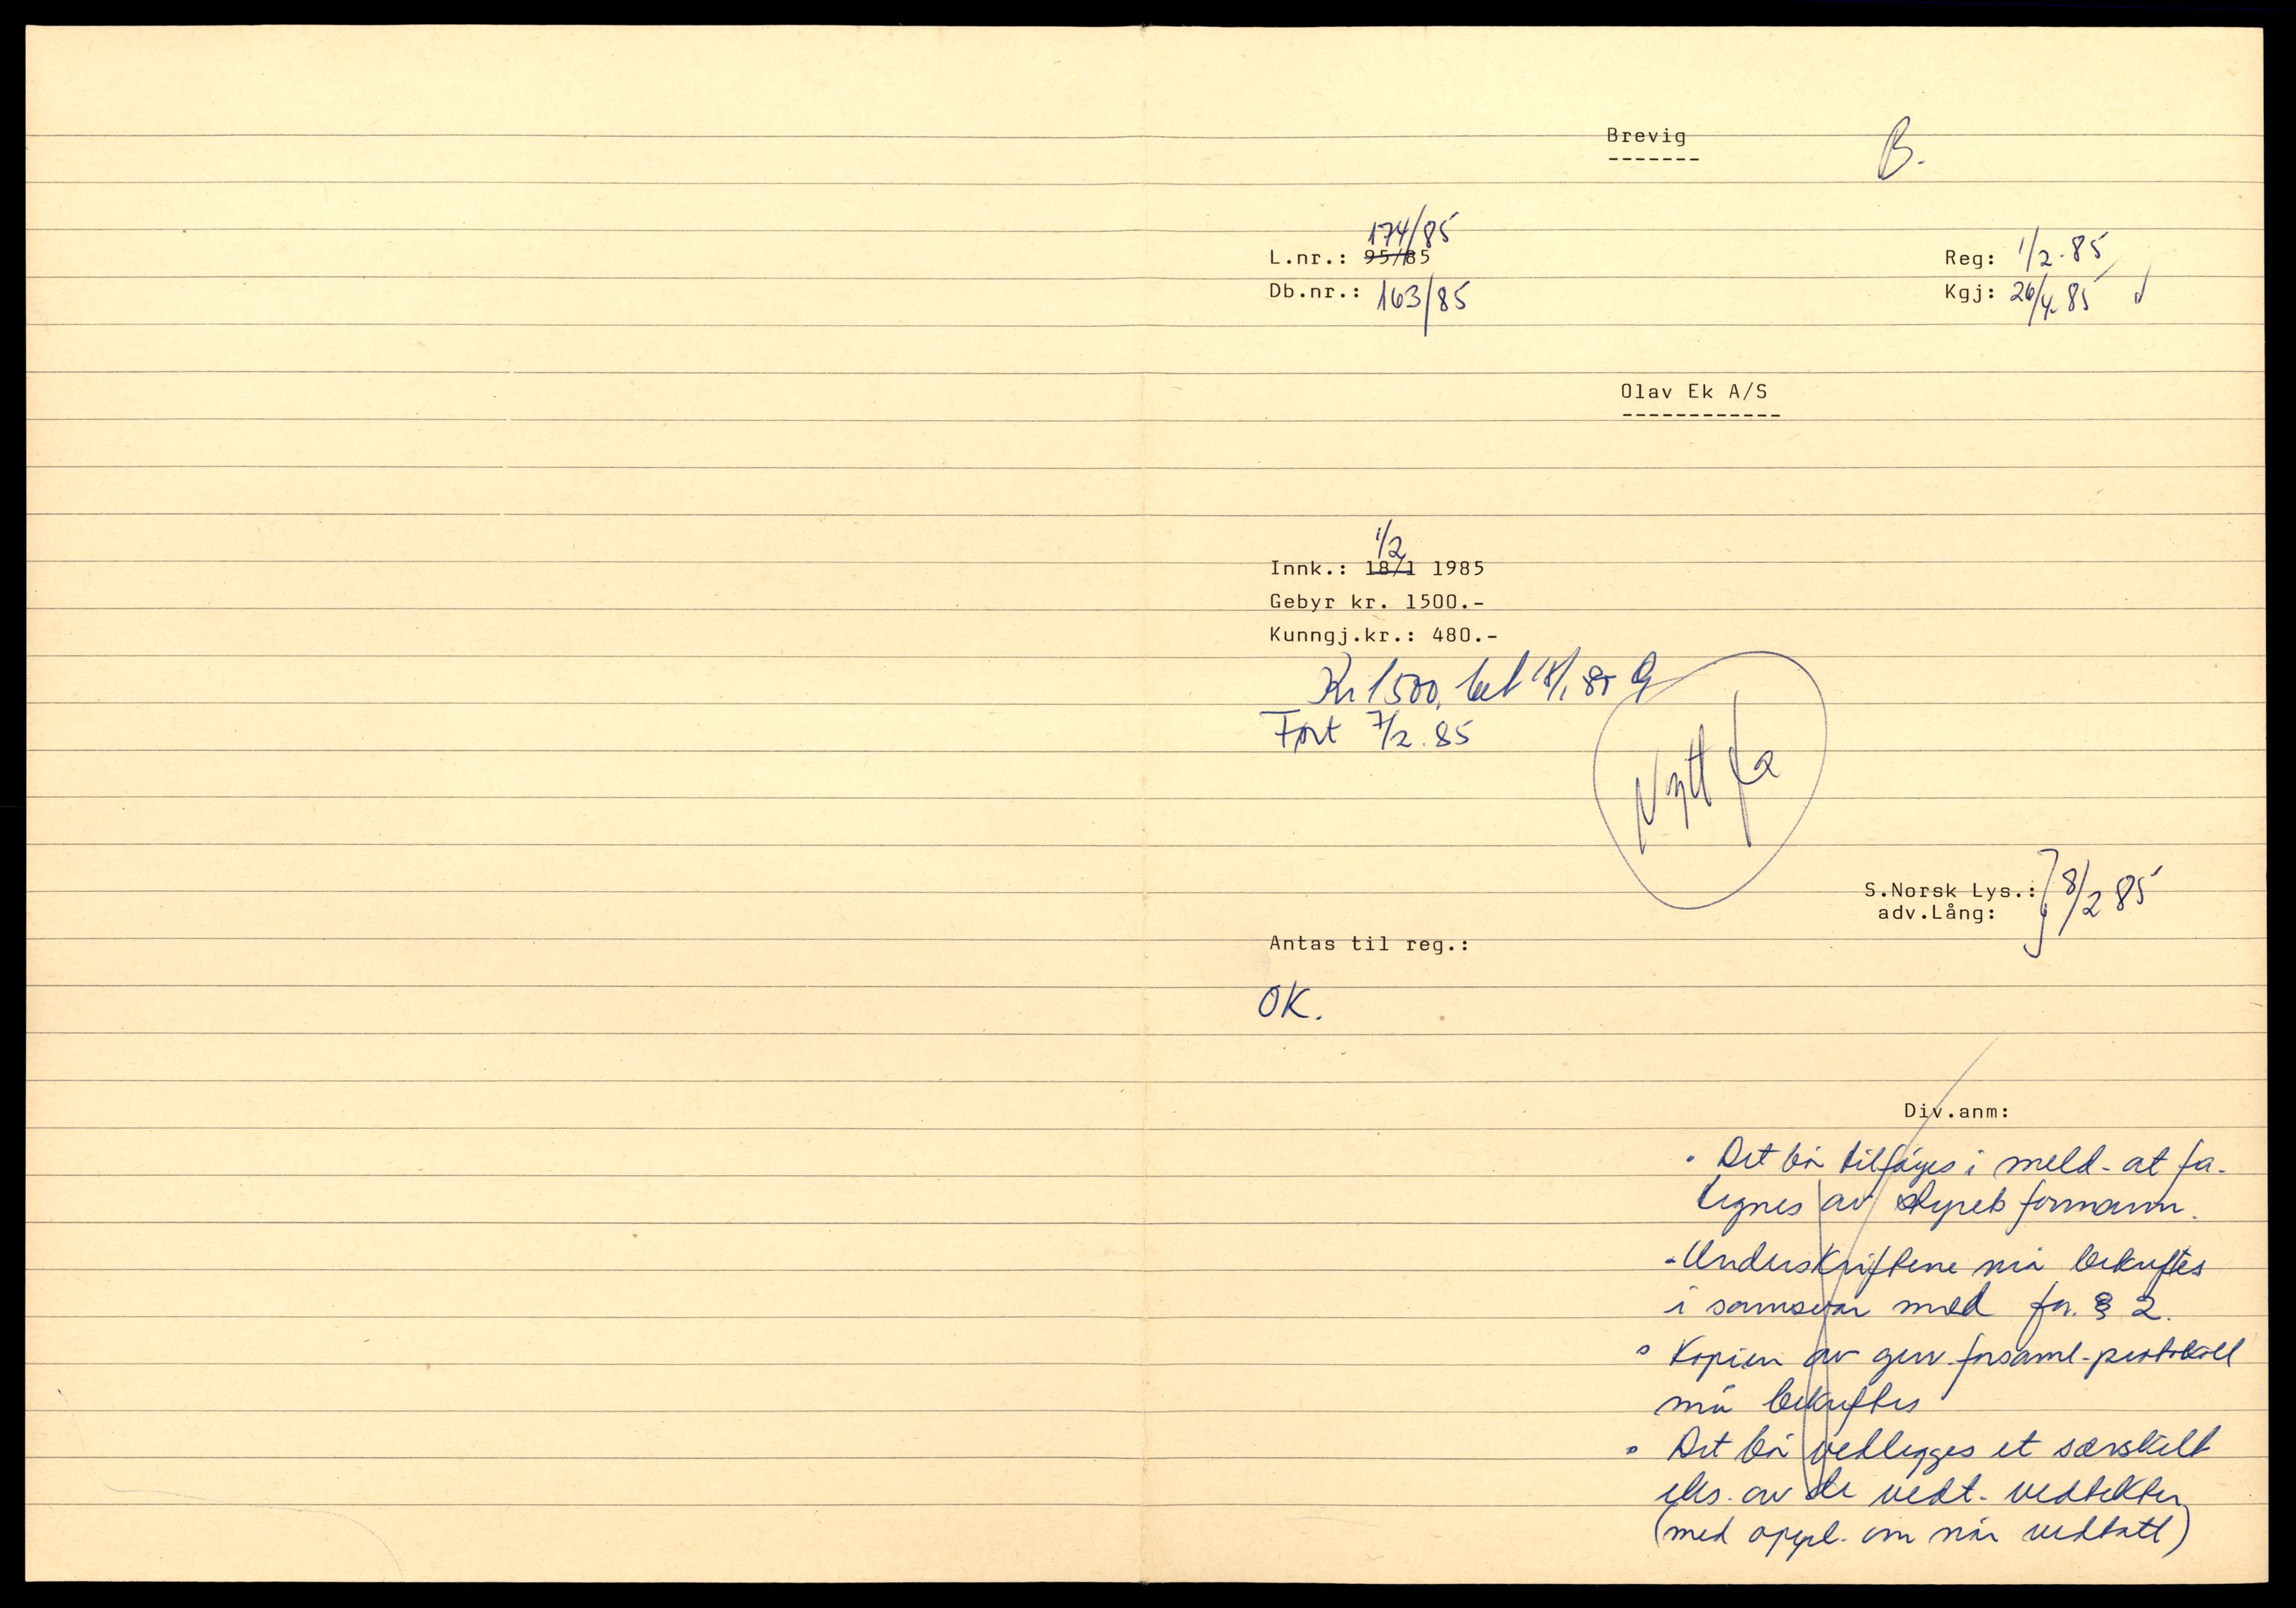 Brevig
-------
B.
174/85
L.nr.: 95/85
Db.nr.: 163/85
Reg: 1/2-85
Kgj: 26/4-85
Olav Ek A/S
------------
1/2
Innk.: 18/1 1985
Gebyr kr. 1500.-
Kunngj.kr.: 480.-
Kr 1500, bet 18/1 85
Ført 7/2.85
Nytt fa
S.Norsk Lys.:
adv.Lång:
8/2 85
Antas til reg.:
OK.
Div.anm:
• Det bør tilføyes i meld. at fa.
tegnes av styrets formann.
- Underskriftene må bekreftes
i samsvar med fa. § 2.
° Kopien av gen.forsaml.protokoll
må bekreftes
° Det bør vedlegges et særskilt
eks. av de vedt. vedtekter
(med oppl. om når vedtatt)